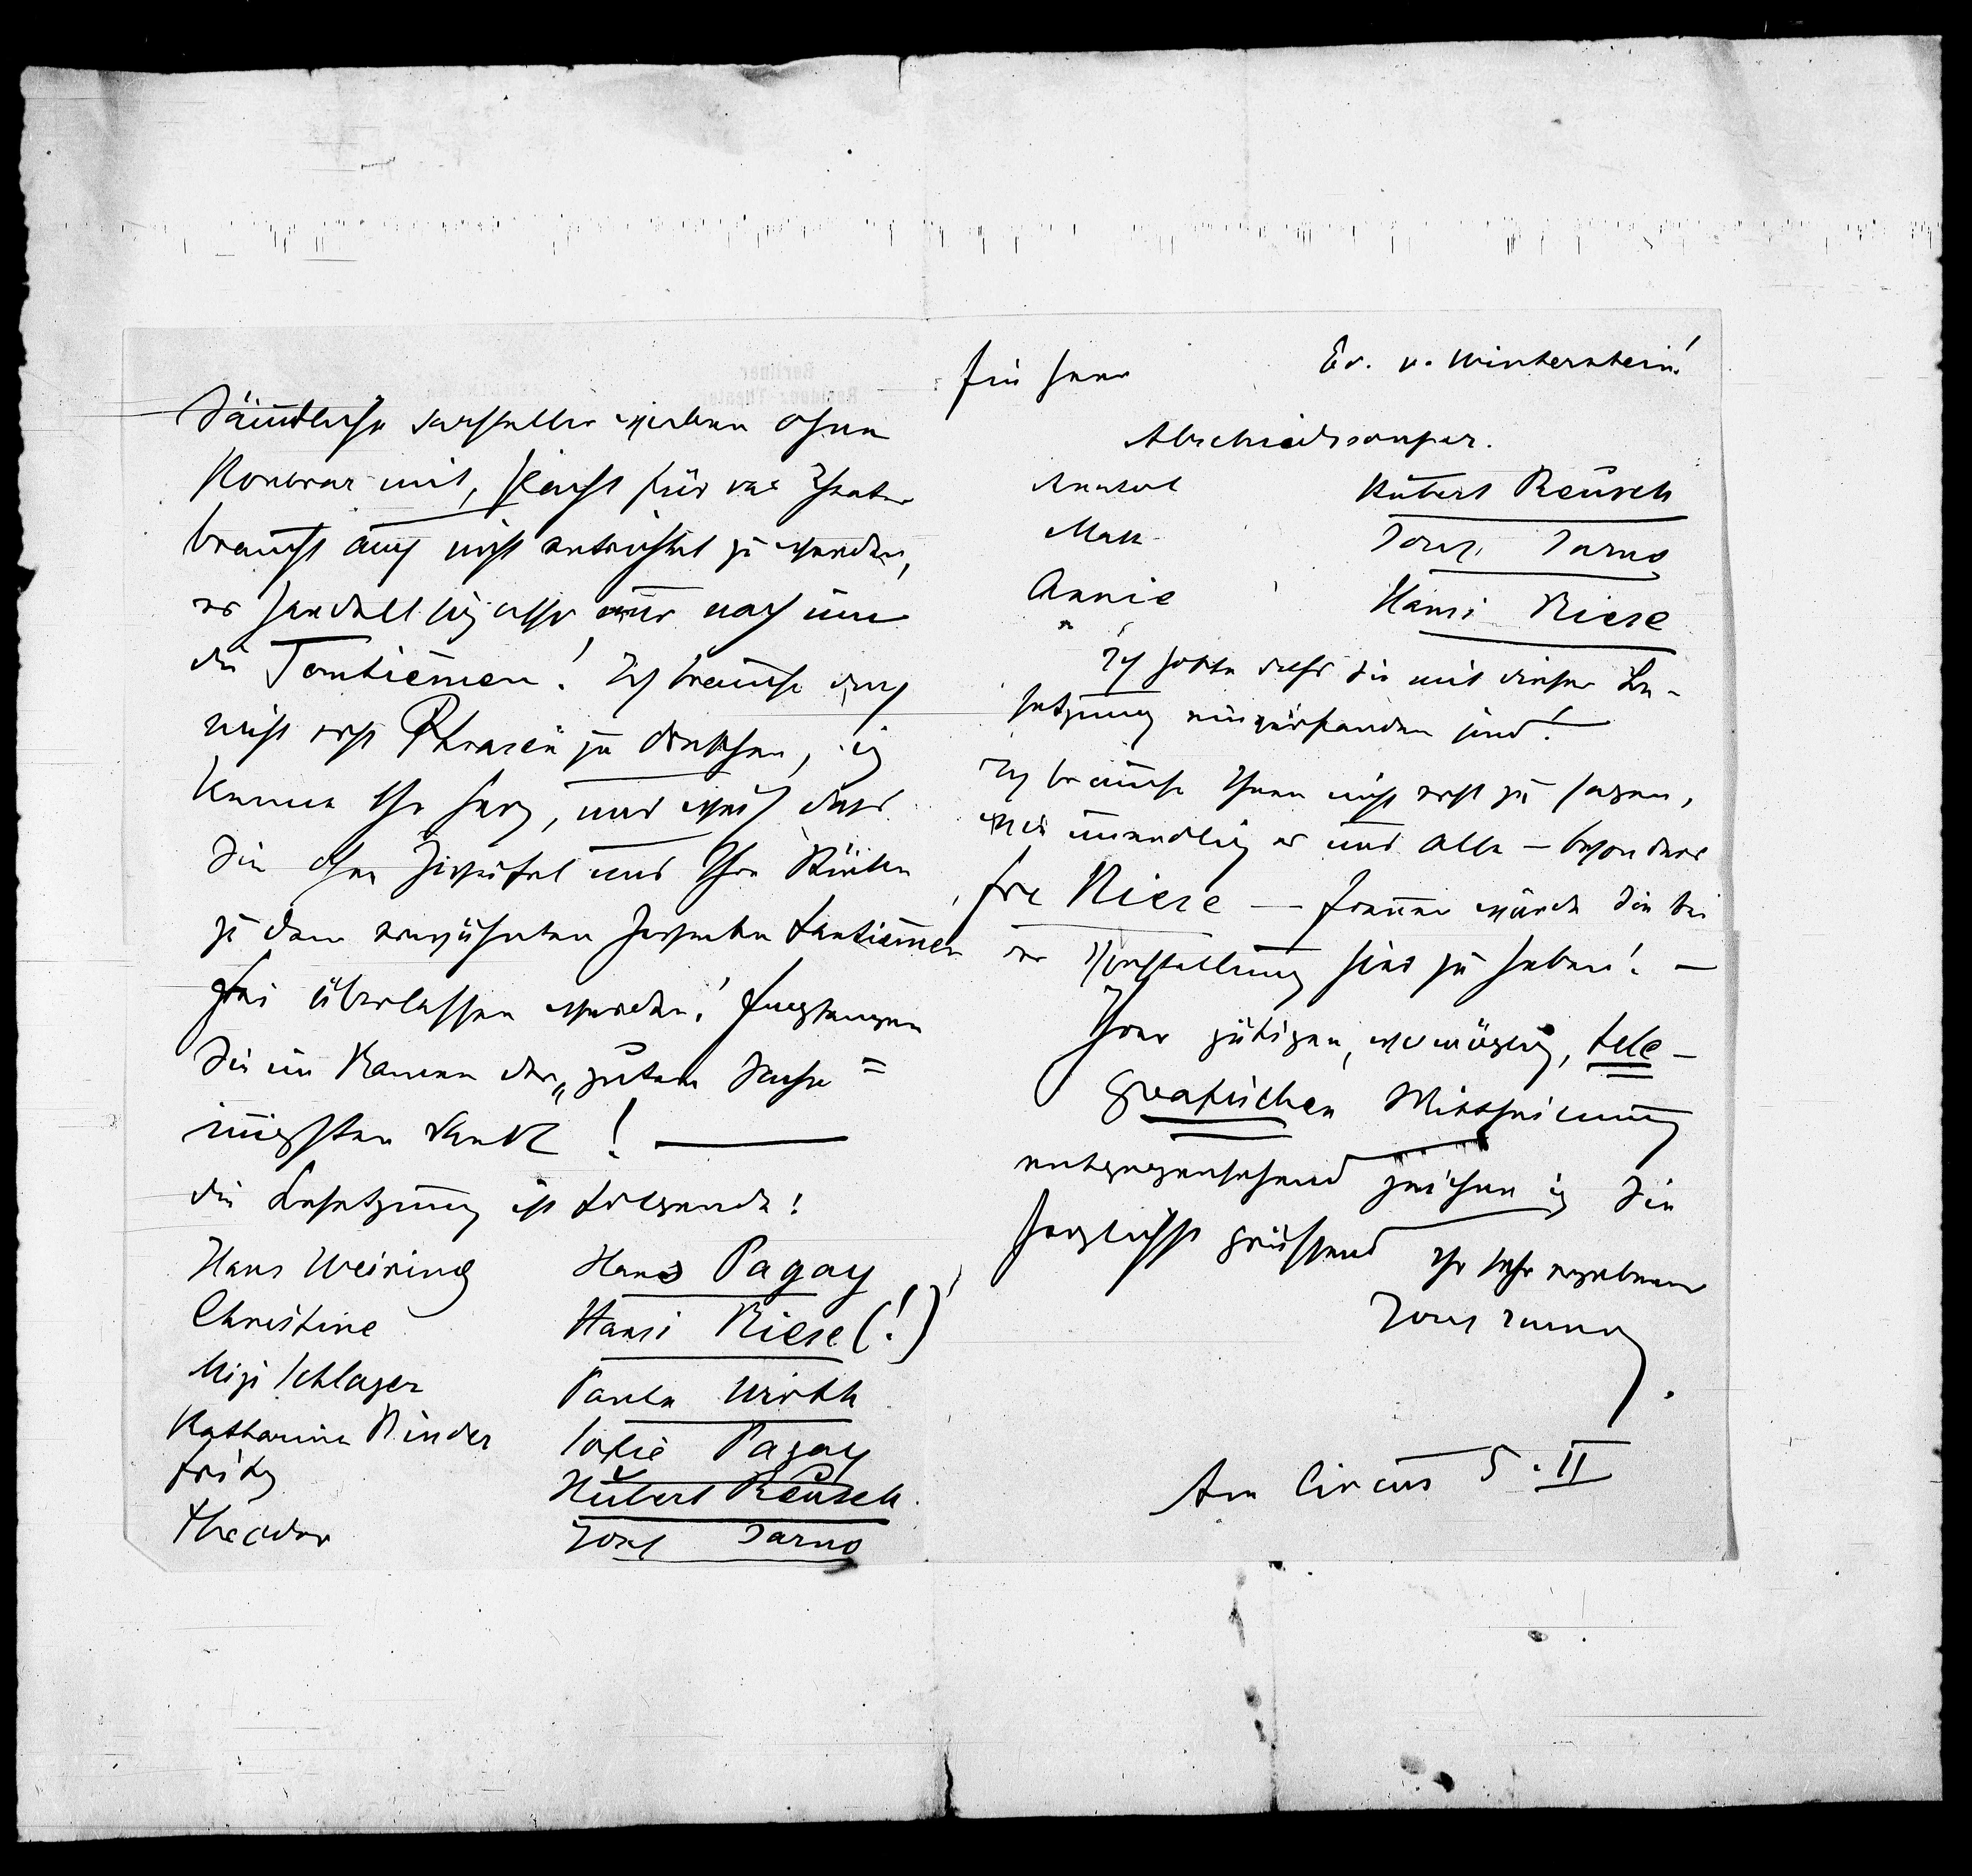 Sämtliche Darsteller wirken ohne
Honorar mit, Pacht für das Theater
braucht auch nicht entrichtet zu werden,
es handelt sich also nur noch um
die Tantièmen! Ich brauche doch
nicht erst Phrasen zu dreschen, ich
kenne Ihr Herz, und weiß dass
Sie ohne Zweifel uns Ihre Stücke
zu dem erwähnten Zwecke tantièmen
frei überlassen werden! Empfangen
Sie im Namen der „guten Sache"
innigsten Dank! —
die Besetzung ist folgende:
Hans Weiring Hans Pagay
Christine Hansi Niese (!)
Mizi Schlager Paula Wirth
Katharina Binder Sofie Pagay
Fritz Hubert Reusch.
Theodor Josef Jarno
Ein Herr Ed. v. Winterstein!
Abschiedssouper.
Anatol Hubert Reusch
Max Josef Jarno
Annie Hansi Niese
Ich hoffe dass Sie mit dieser Be-
setzung einverstanden sind! —
Ich brauche Ihnen nicht erst zu sagen,
wie unendlich es uns alle — besonders
Frl Niese — freuen würde Sie bei
der Vorstellung hier zu haben! —
Ihrer gütigen, womöglich, tele-
grafischen Mittheilung
entgegensehend zeichne ich Sie
herzlichst grüssend Ihr sehr ergebener
Josef Jarno.
Am Circus 5. II